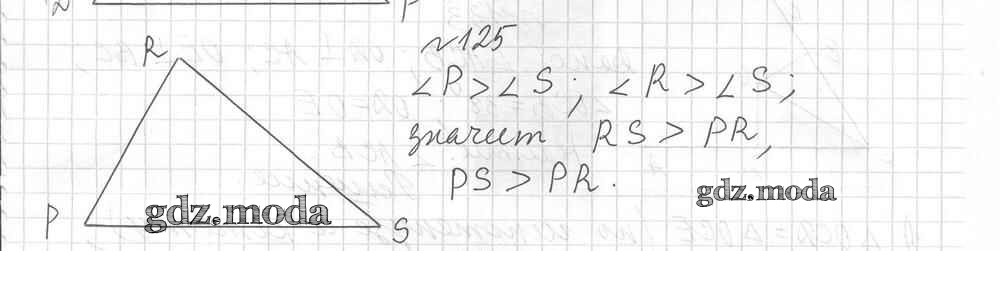 R
№125
∠P > ∠S; ∠R > ∠S;
значит RS > PR,
PS > PR.
gdz.moda
gdz.moda
P
S